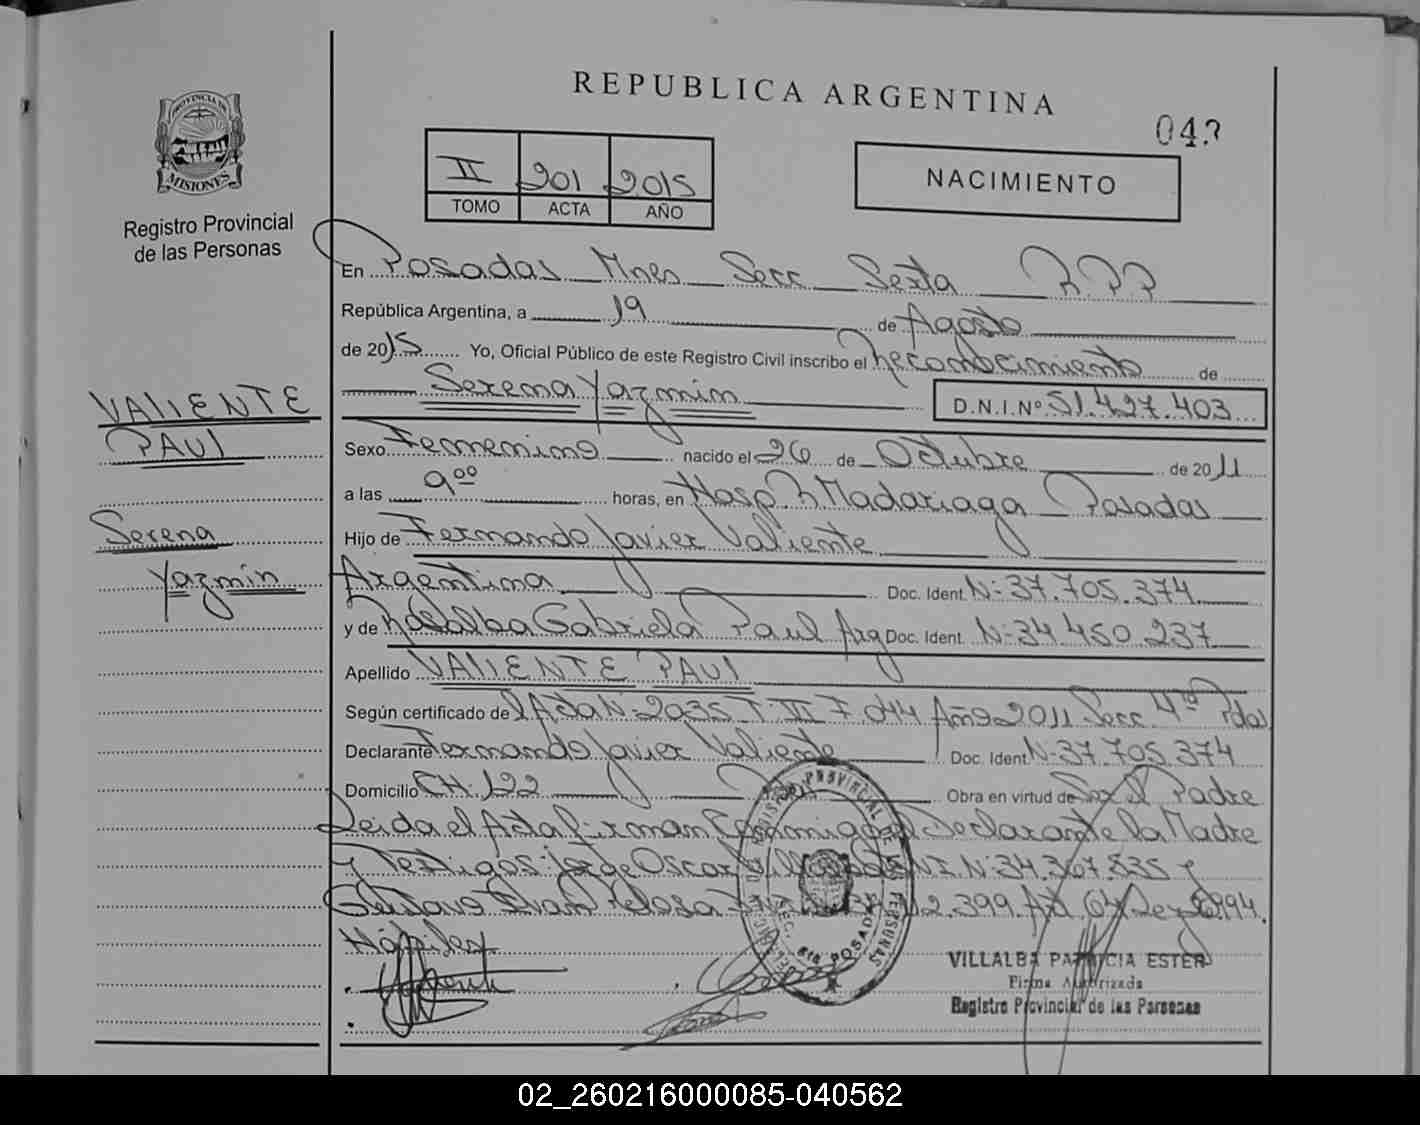 REPUBLICA ARGENTINA
PROVINCIA DE
MISIONES
Registro Provincial
de las Personas
II 201 2015
TOMO ACTA AÑO
NACIMIENTO
En Posadas Mnes Secc Sexta R.P.P
República Argentina, a 19 de Agosto
de 2015 Yo, Oficial Público de este Registro Civil inscribo el Reconocimiento de
Serena Yazmin D.N.I.Nº 51.427.403
VALIENTE
PAUL
Serena
Yazmin
Sexo Femenino nacido el 26 de Octubre de 2011
a las 9⁰⁰ horas, en Hosp R Madariaga Posadas
Hijo de Fernando Javier Valiente
Argentina Doc. Ident. Nº 37.705.374
y de Rosalba Gabriela Paul Arg Doc. Ident. Nº 34.450.237
Apellido VALIENTE PAUL
Según certificado de Acta Nº 2035 T III F 044 Año 2011 Secc 4ta Pdas
Declarante Fernando Javier Valiente Doc. Ident. Nº 37.705.374
Domicilio CH. 122 Obra en virtud de Ser el Padre
Leida el Acta firman Conmigo el Declarante la Madre
y Testigos: Jorge Oscar D.N.I. Nº 34.367.835 y
Gustavo Ivan 2.399. Art. Ley
VILLALBA PATRICIA ESTER
Firma Autorizada
Registro Provincial de las Personas
02_260216000085-040562